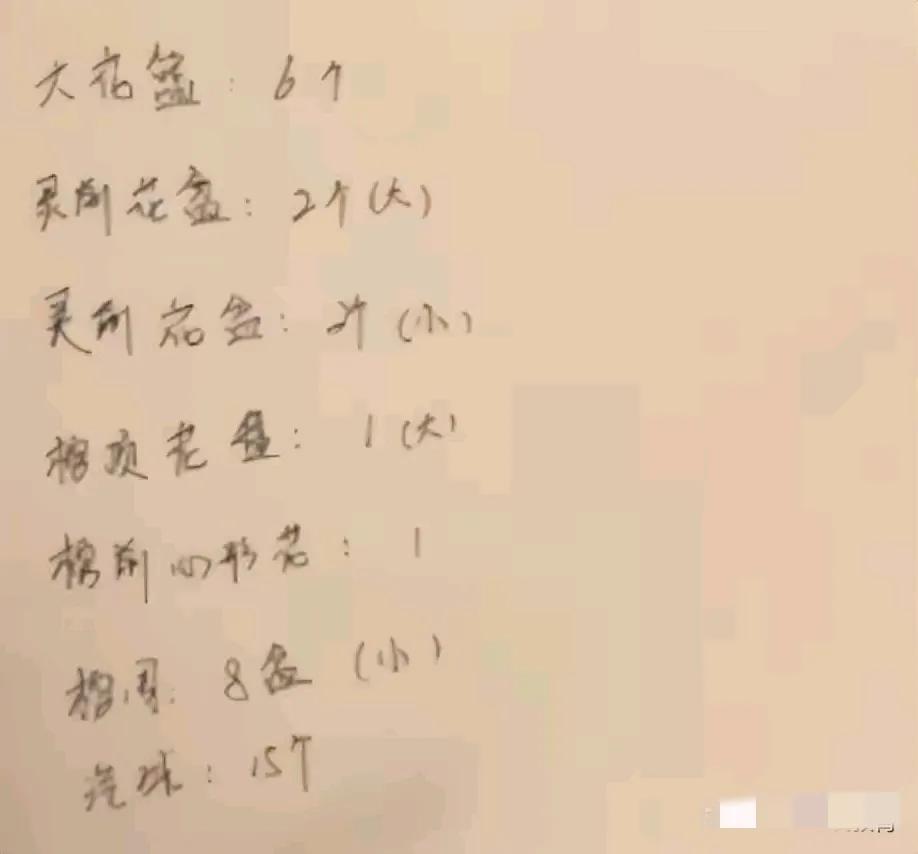 大花篮：6个
灵前花盆：2个(大)
灵前花盆：2个(小)
棺顶花盆：1(大)
棺前心形花：1
棺周：8盆(小)
汽球：15个